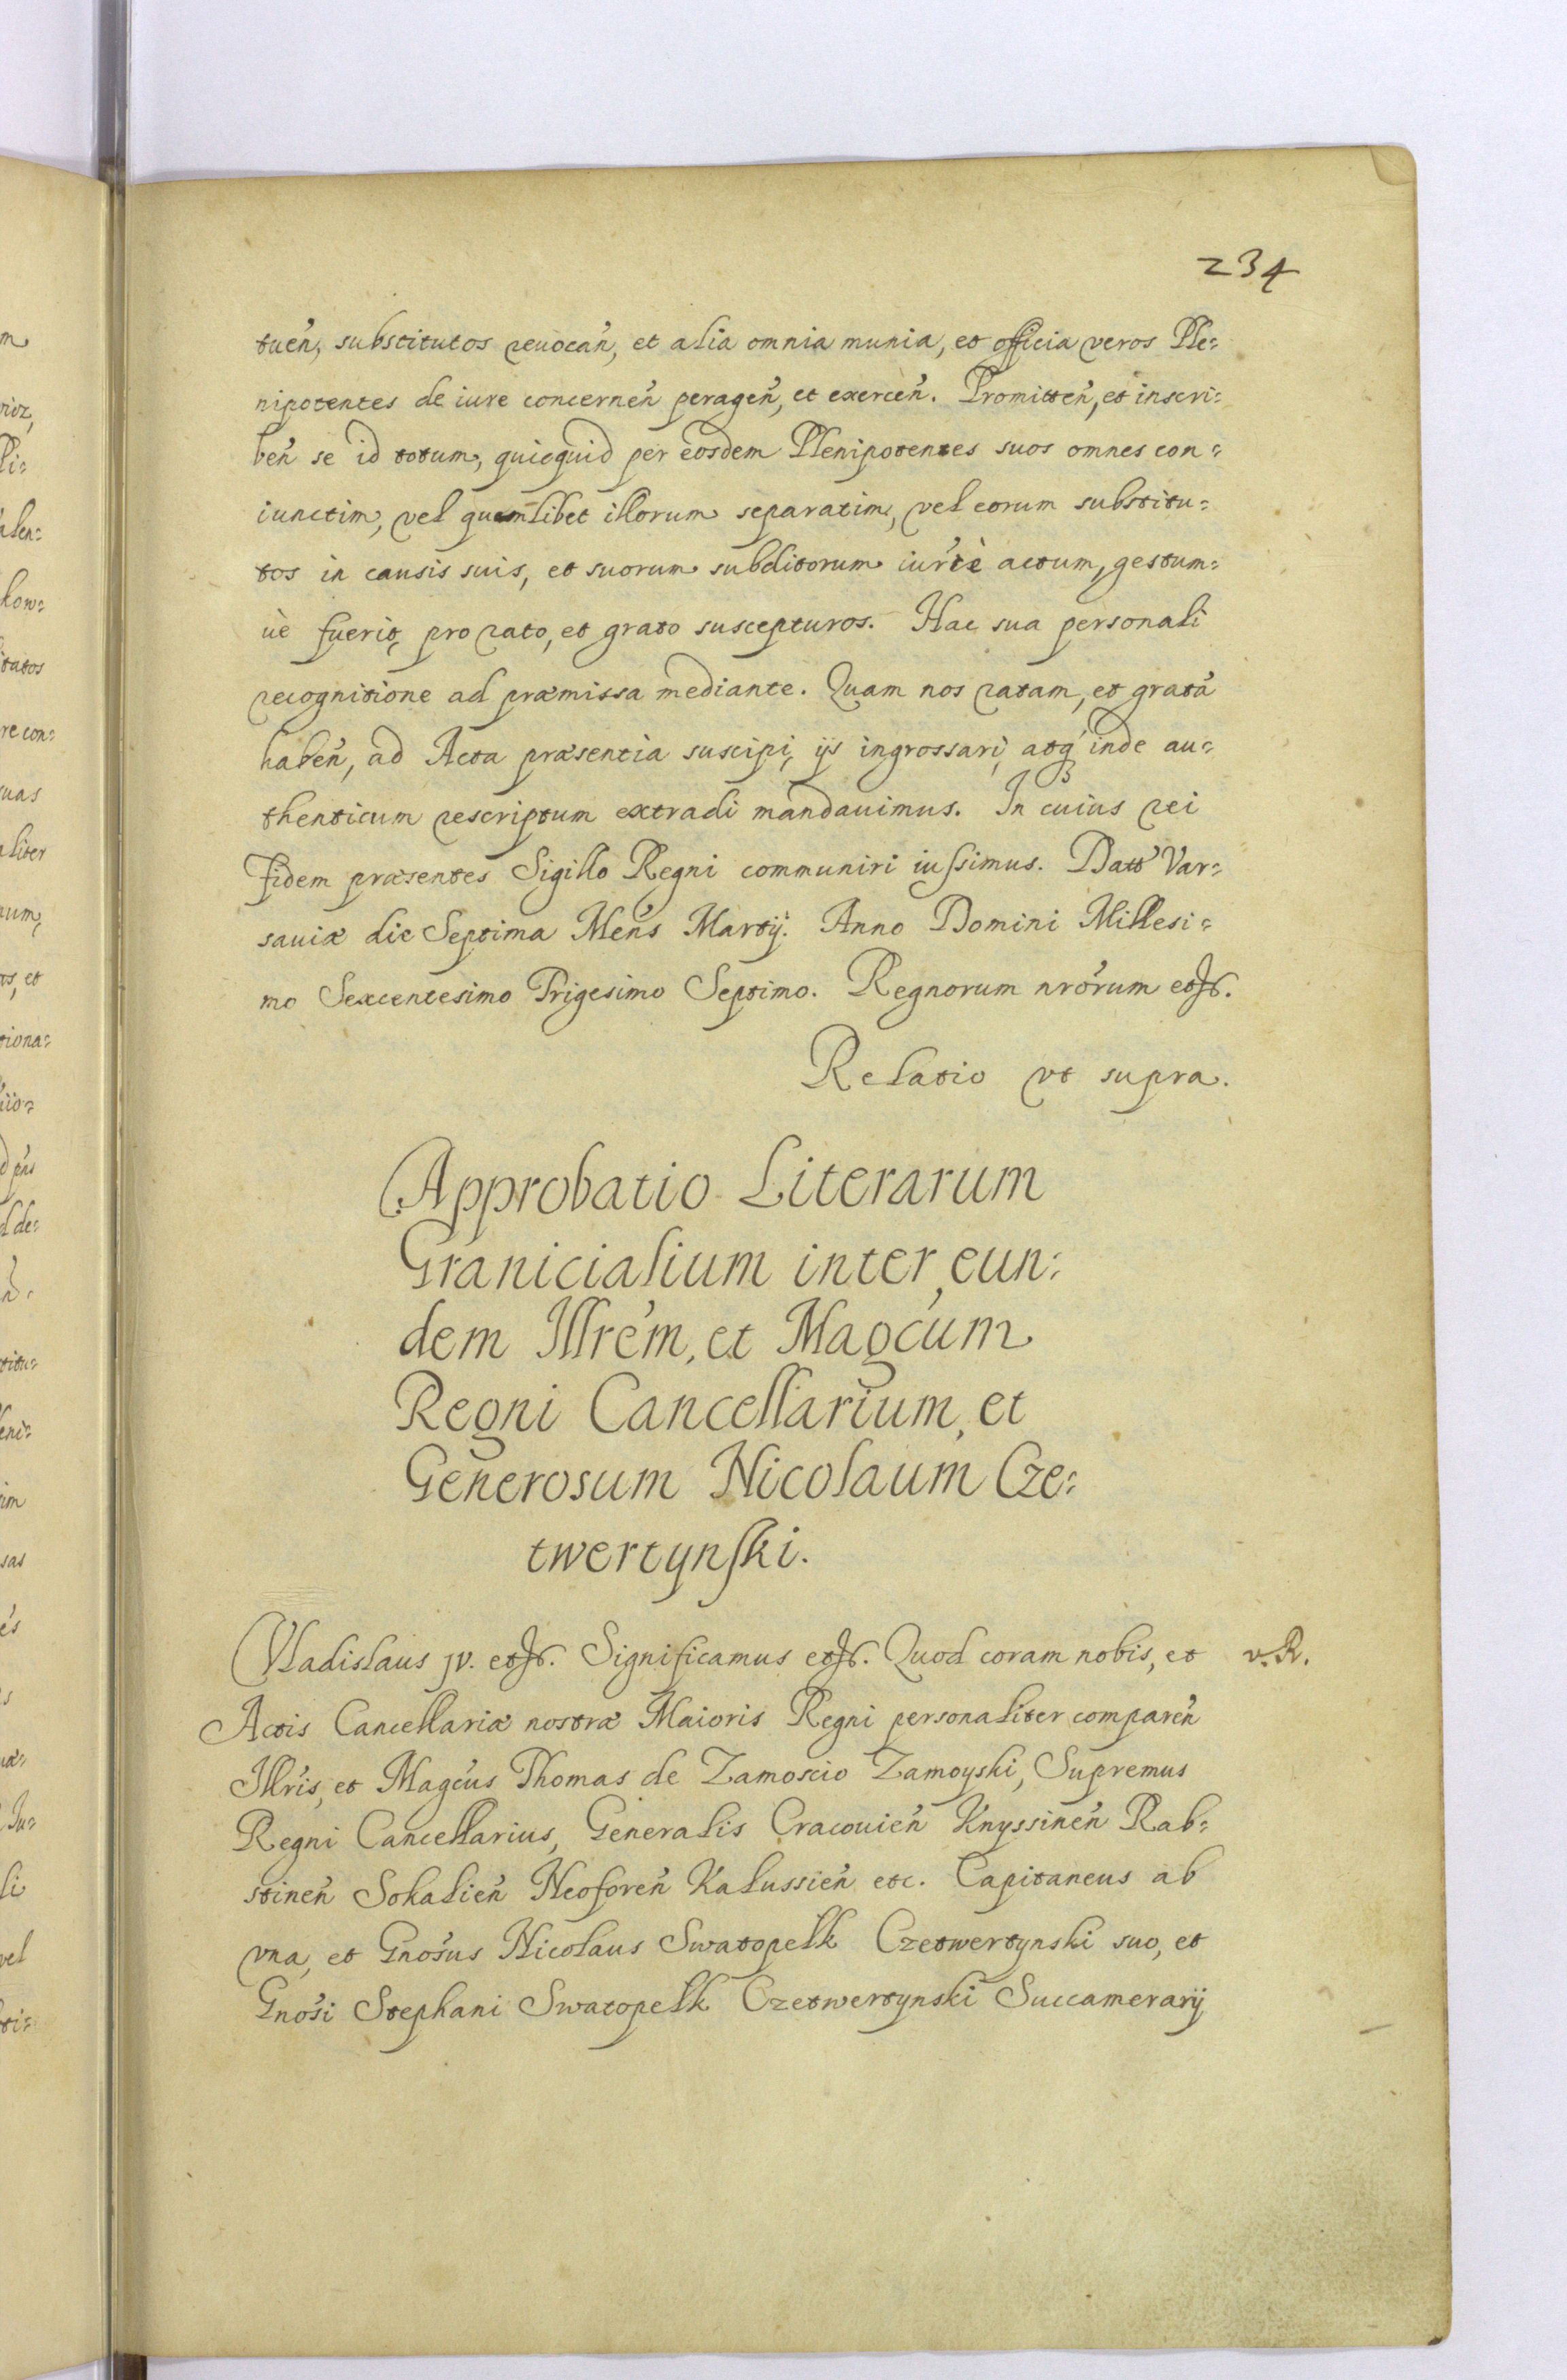 234
tuen̄, substitutos reuocan̄, et alia omnia munia, et officia veros Ple:
nipotentes de iure concernen̄ peragen̄, et exercen̄. Promitten̄, et inscri:
ben̄ se id totum, quicquid per eosdem Plenipotentes suos omnes con:
iunctim, vel quemlibet illorum separatim, vel eorum substitu:
tos in causis suis, et suorum subditorum iur̃tè actum, gestum:
uè fuerit, pro rato, et grato suscepturos. Hac sua personali
recognitione ad præmissa mediante. Quam nos ratam, et gratā
haben̄, ad Acta præsentia suscipi, ijs ingrossari, atq́ꝫ inde au:
thenticum rescriptum extradi mandauimus. In cuius rei
fidem præsentes Sigillo Regni communiri iussimus. Datt Var:
sauiæ die Septima Men̄s Martij. Anno Domini Millesi:
mo Sexcentesimo Trigesimo Septimo. Regnorum nr̄orum etc.
Relatio vt supra.
Approbatio Literarum
Granicialium inter eun:
dem Illrēm, et Magcūm
Regni Cancellarium, et
Generosum Nicolaum Cze:
twertynski.
Vladislaus jv. etc. Significamus etc. Quod coram nobis, et
v. R.
Actis Cancellariæ nostræ Maioris Regni personaliter comparen̄
Illrīs, et Magcūs Thomas de Zamoscio Zamoyski, Supremus
Regni Cancellarius, Generalis Cracouien̄ Knyssinen̄ Rab:
stinen̄ Sokalien̄ Neoforen̄ Kalussien̄ etc. Capitaneus ab
vna, et Gnōsus Nicolaus Swatopelk Czetwertynski suo, et
Gnōsi Stephani Swatopelk Czetwertynski Succamerarij